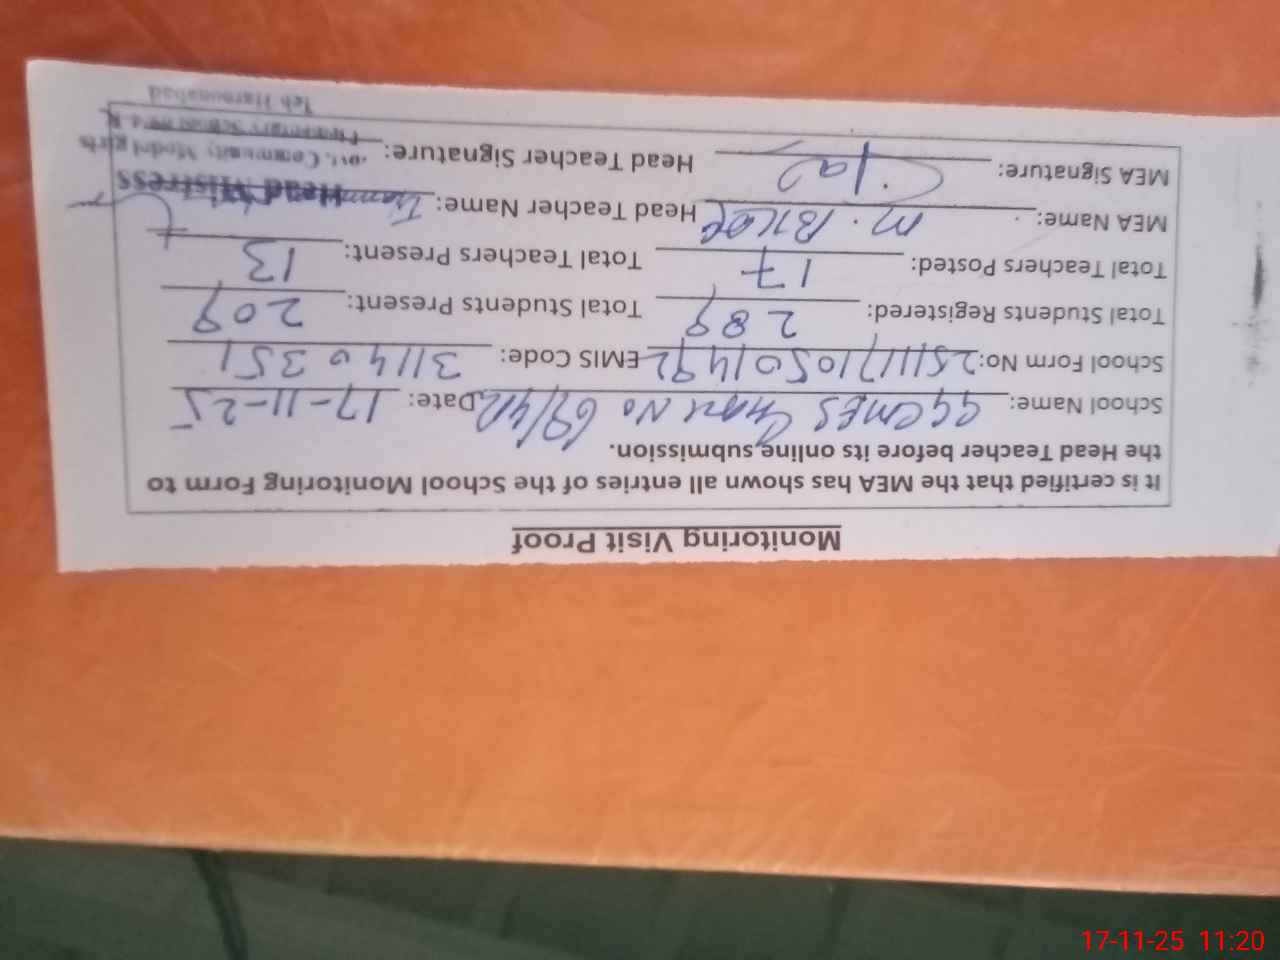 Monitoring Visit Proof
It is certified that the MEA has shown all entries of the School Monitoring Form to
the Head Teacher before its online submission.
School Name: GGCMES Chak No 69/4R Date: 17-11-25
School Form No: 25111710501492 EMIS Code: 31140351
Total Students Registered: 289 Total Students Present: 209
Total Teachers Posted: 17 Total Teachers Present: 13
MEA Name: M. Head Teacher Name:
Head Mistress
MEA Signature: Head Teacher Signature:
Govt. Community Model girls
Elementary School
Teh Haroonabad
17-11-25 11:20